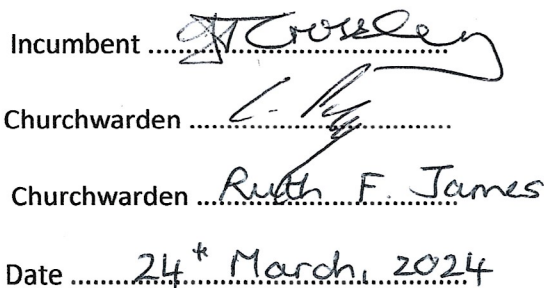 Incumbent ........ Crossley
Churchwarden ........
Churchwarden ... Ruth F. James
Date ........ 24th March, 2024